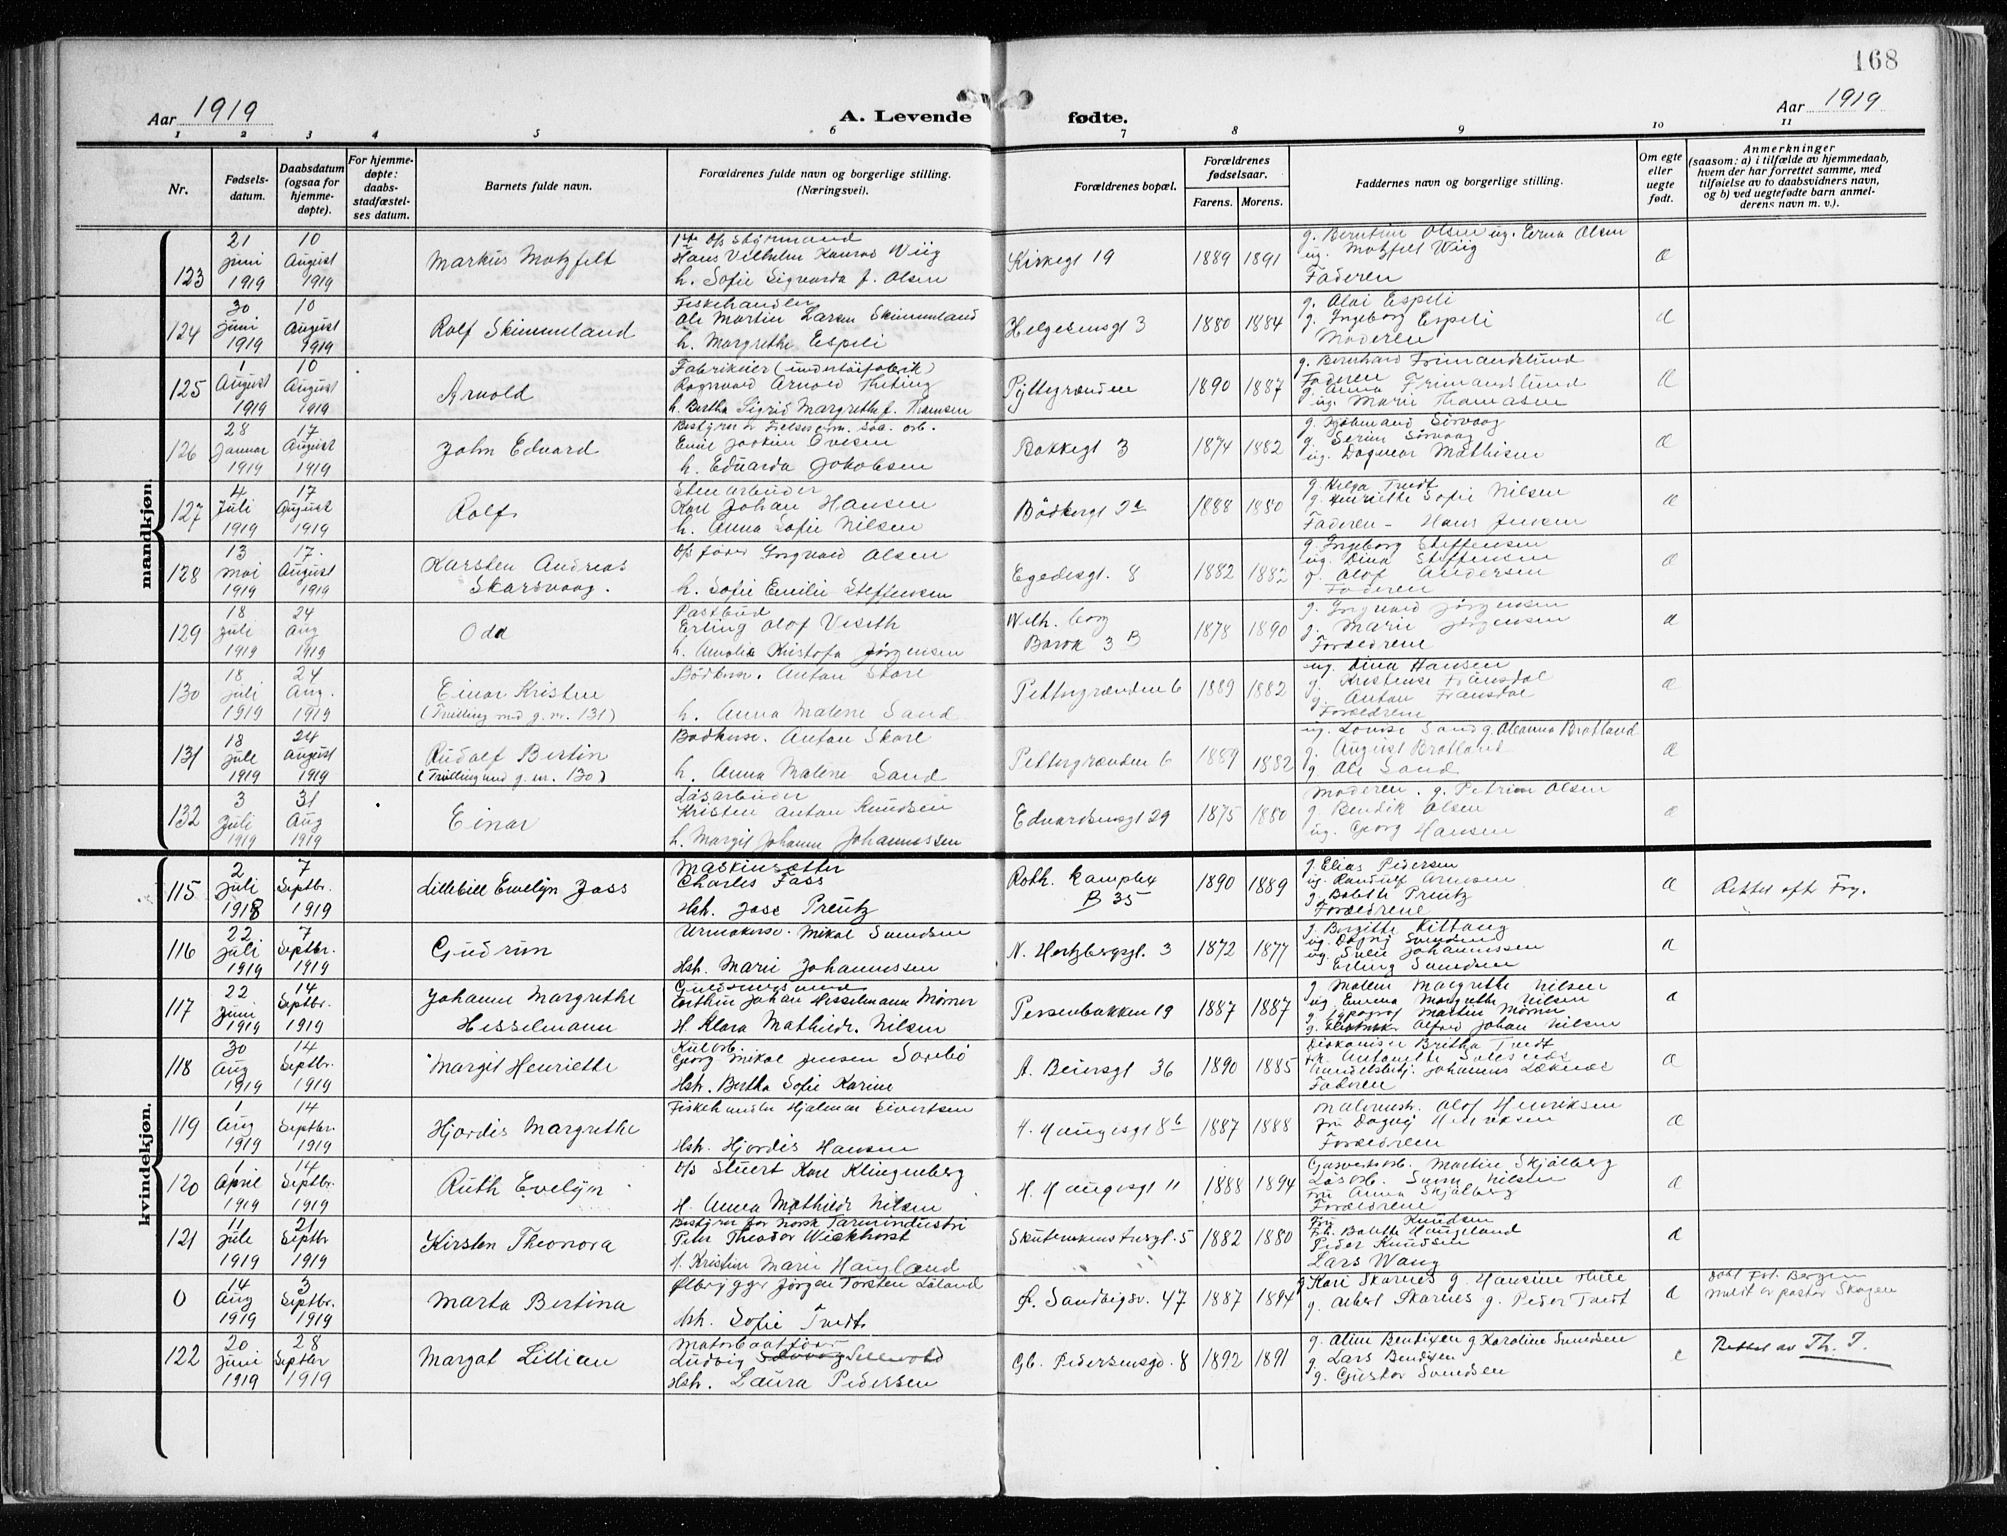 168
Aar 1919
A. Levende fødte.
Aar 1919
1 2 3 4 5 6 7 8 9 10 11
Nr.
Fødsels-
datum.
Daabsdatum
(ogsaa for
hjemme-
døpte).
For hjemme-
døpte:
daabs-
stadfæstel-
ses datum.
Barnets fulde navn.
Forældrenes fulde navn og borgerlige stilling.
(Næringsvei).
Forældrenes bopæl.
Forældrenes
fødselsaar.
Farens. Morens.
Faddernes navn og borgerlige stilling.
Om egte
eller
uegte
født.
Anmerkninger
(saasom: a) i tilfælde av hjemmedaab,
hvem der har forrettet samme, med
tilføielse av to daabsvidners navn,
og b) ved uegtefødte barn anmel-
derens navn m. v.).
mandkjøn.
123
21 Juni 1919
10 August 1919
Markus Motzfelt
1ste d/s styrmand
Hans Vilhelm Konrad Wiig
h. Sofie Sigvarda f. Olsen
Kirkegt 19
1889 1891
g. Berntine Olsen ug. Erna Olsen
ug. Motzfelt Wiig
Faderen
124
30 Juni 1919
10 August 1919
Rolf Skimmeland
Fiskehandler
Ole Martin Larsen Skimmeland
h. Margrethe Espeli
Helgesensgt 3
1880 1884
g. Olai Espeli
g. Ingeborg Espeli
Moderen
125
1 August 1919
10 August 1919
Arnold
Fabrikeier (undertøifabrik)
Ragnvald Arnold Thiting
h. Bertha Sigrid Margrethe f. Thomsen
Pyttergrænden
1890 1887
g. Bernhard Frimandslund
Faderen
g. Anna Frimandslund
ug. Marie Thomasen
126
28 Januar 1919
17 August 1919
John Edvard
Emil Joakim Ovesen
h. Edvarda Jakobsen
Bakkegt 3
1874 1882
g. Serine Sørvaag
ug. Dagmar Mathisen
127
4 Juli 1919
17 August 1919
Rolf
Stenarbeider
Karl Johan Hansen
h. Anna Sofie Nilsen
Bødkergt 2a
1888 1880
g. Helga Tvedt
g. Henriette Sofie Nilsen
Faderen - Hans Jensen
128
13 Mai 1919
17. August 1919
Karsten Andreas
Skarsvaag.
d/s fører Ingvald Olsen
h. Sofie Emilie Steffensen
Egedesgt. 8
1882 1882
g. Ingeborg Steffensen
ug. Dina Steffensen
g. Olof Andersen
Faderen
129
18 Juli 1919
24 Aug 1919
Odd
Postbud
Erling Olof Viseth
h. Amalia Kristofa Jørgensen
Wilh.borg
Barak 3 B
1878 1890
g. Ingvald Jørgensen
g. Marie Jørgensen
Forældrene
130
18 Juli 1919
24 Aug. 1919
Einar Kristen
(Tvilling med g. nr. 131)
Bødkersv. Anton Skare
h. Anna Malene Sand
Pettergrænden 6
1889 1882
ug. Dina Hansen
g. Kristense Framsdal
g. Anton Framsdal
Forældrene
131
18 Juli 1919
24 August 1919
Rudolf Bertin
(Tvilling med g. nr. 130)
Bødkersv. Anton Skare
h. Anna Malene Sand
Pettergrænden 6
1889 1882
ug. Lovise Sand g. Oleanna Bratland
g. August Bratland
g. Ole Sand
132
3 Juli 1919
31 Aug 1919
Einar
Løsarbeider
Kristen Anton Knudsen
h. Margit Johanne Johannessen
Edvardsensgt 29
1875 1880
Moderen. g. Petrine Olsen
g. Bendik Olsen
ug. Georg Hansen
kvindekjøn.
115
2 Juli 1918
7 Septbr. 1919
Lillebill Evelyn Fass
Maskinsetter
Charles Fass
Hst. Jose Preutz
Roth. Komplex
B 35
1890 1889
g. Elias Pedersen
ug. Randulf Arnesen
g. Babeth Preutz
Forældrene
Rettet efter Fry.
116
22 Juli 1919
7 Septbr. 1919
Gudrun
Urmakersv. Mikal Svendsen
Hst. Marie Johannessen
N. Hertzbergsgt. 3
1872 1877
g. Birgitte Kittang
ug. Dagny Svendsen
Erling Svendsen
117
22 Juni 1919
14 Septbr. 1919
Johanne Margrethe
Hesselmann
Guldsmedsvend
Arthur Johan Hesselmann Mørner
H Klara Mathilde Nilsen
Persenbakken 19
1887 1887
g. Malene Margrethe Nilsen
ug. Emma Margrethe Nilsen
g. Typograf Martin Mørner
g. Elektriker Alfred Johan Nilsen
118
30 Aug 1919
14 Septbr. 1919
Margit Henriette
Georg Mikal Jensen Sørebø
Hst. Bertha Sofie Karine
A. Beiersgt 36
1890 1885
Diakonisse Britha Tvedt
Faderen
119
1 Aug 1919
14 Septbr. 1919
Hjordis Margrethe
Fiskehandler Hjalmar Sivertsen
Hst. Hjordis Hansen
H. Haugesgt 8b
1887 1888
Malermstr. Olof Henriksen
Fru Dagny Henriksen
Forældrene
120
1 April 1919
14 Septbr. 1919
Ruth Evelyn
d/s Stuert Karl Klingenberg
H. Anna Mathilde Nilsen
H. Haugesgt 11
1888 1894
Gasverksarb. Martin Skjølberg
Fru Anna Skjølberg
Forældrene
121
11 Juli 1919
21 Septbr 1919
Kirsten Theonora
Bestyrer for Norsk Tarmindustri
Peter Theodor Wiekhorst
H. Kristine Marie Haugland
Skutenkensturgt. 5
1882 1880
Fru Knudsen
Frk. Babette Haugeland
Peder Knudsen
Lars Wang
0
14 Aug 1919
3 Septbr. 1919
Marta Bertina
Ølbrygger Jørgen Torsten Laland
Hst. Sofie Tvedt
Ø. Sandvigsv. 47
1887 1894
g. Kari Skarnes g. Hansine Hille
g. Albert Skarnes g. Peder Tvedt
døbt Frk. Bergen
meldt av pastor Skagen
122
20 Juni 1919
28 Septbr 1919
Margot Lillian
Motorbaatfører
Ludvig
Hst. Laura Pedersen
Gb. Pedersensgd. 8
1892 1891
g. Aline Bendixen g. Karoline Svendsen
g. Lars Bendixen
g. Gustav Svendsen
Rettet av Th. J.